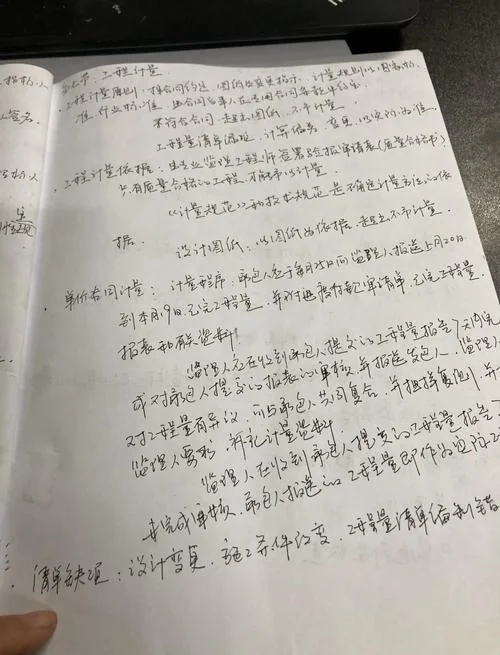 第七节：工程计量
工程计量原则：按合同约定，图纸及变更指示，计量规则以国家标
准，行业标准，
不符合合同，超出图纸，不予计量
工程量清单漏项，计算偏差，变更，以实际为准。
工程计量依据：由专业监理工程师签署的报申请表（质量合格书）
只有质量合格的工程，才能予以计量
《计量规范》和技术规范是确定计量方法的依
据．设计图纸：以图纸为依据，超出不予计量．
单价合同计量：计量程序：承包人应于每月25日向监理人报送上月20日
到本月19日已完工程量，并附进度付款申请单，已完工程量
报表和有关资料
监理人应在收到承包人提交的工程量报告7天内完
成对承包人提交的报表的审核，并报送发包人，监理人
对工程量有异议，可与承包人共同复合，并按
监理人要求，补充计量资料
监理人在收到承包人提交的工程量报告7
未完成审核，承包人报送的工程量即作为实际工
清单缺项：设计变更，施工条件改变，工程量清单编制错
招标人
签名